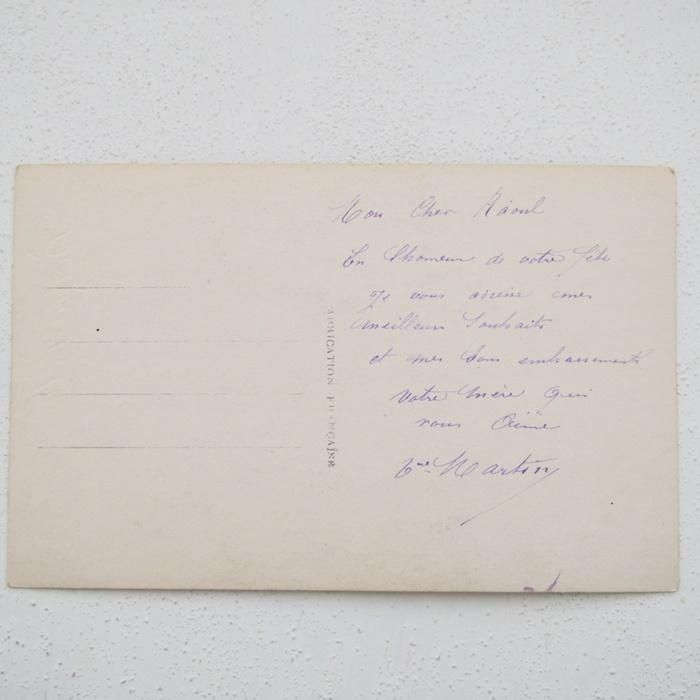 Mon Cher Raoul
En l'honneur de votre fête
Je vous adresse mes
meilleurs Souhaits
et mes bons embrassements
votre mère qui
vous Aime
Vve Martin
FABRICATION FRANÇAISE